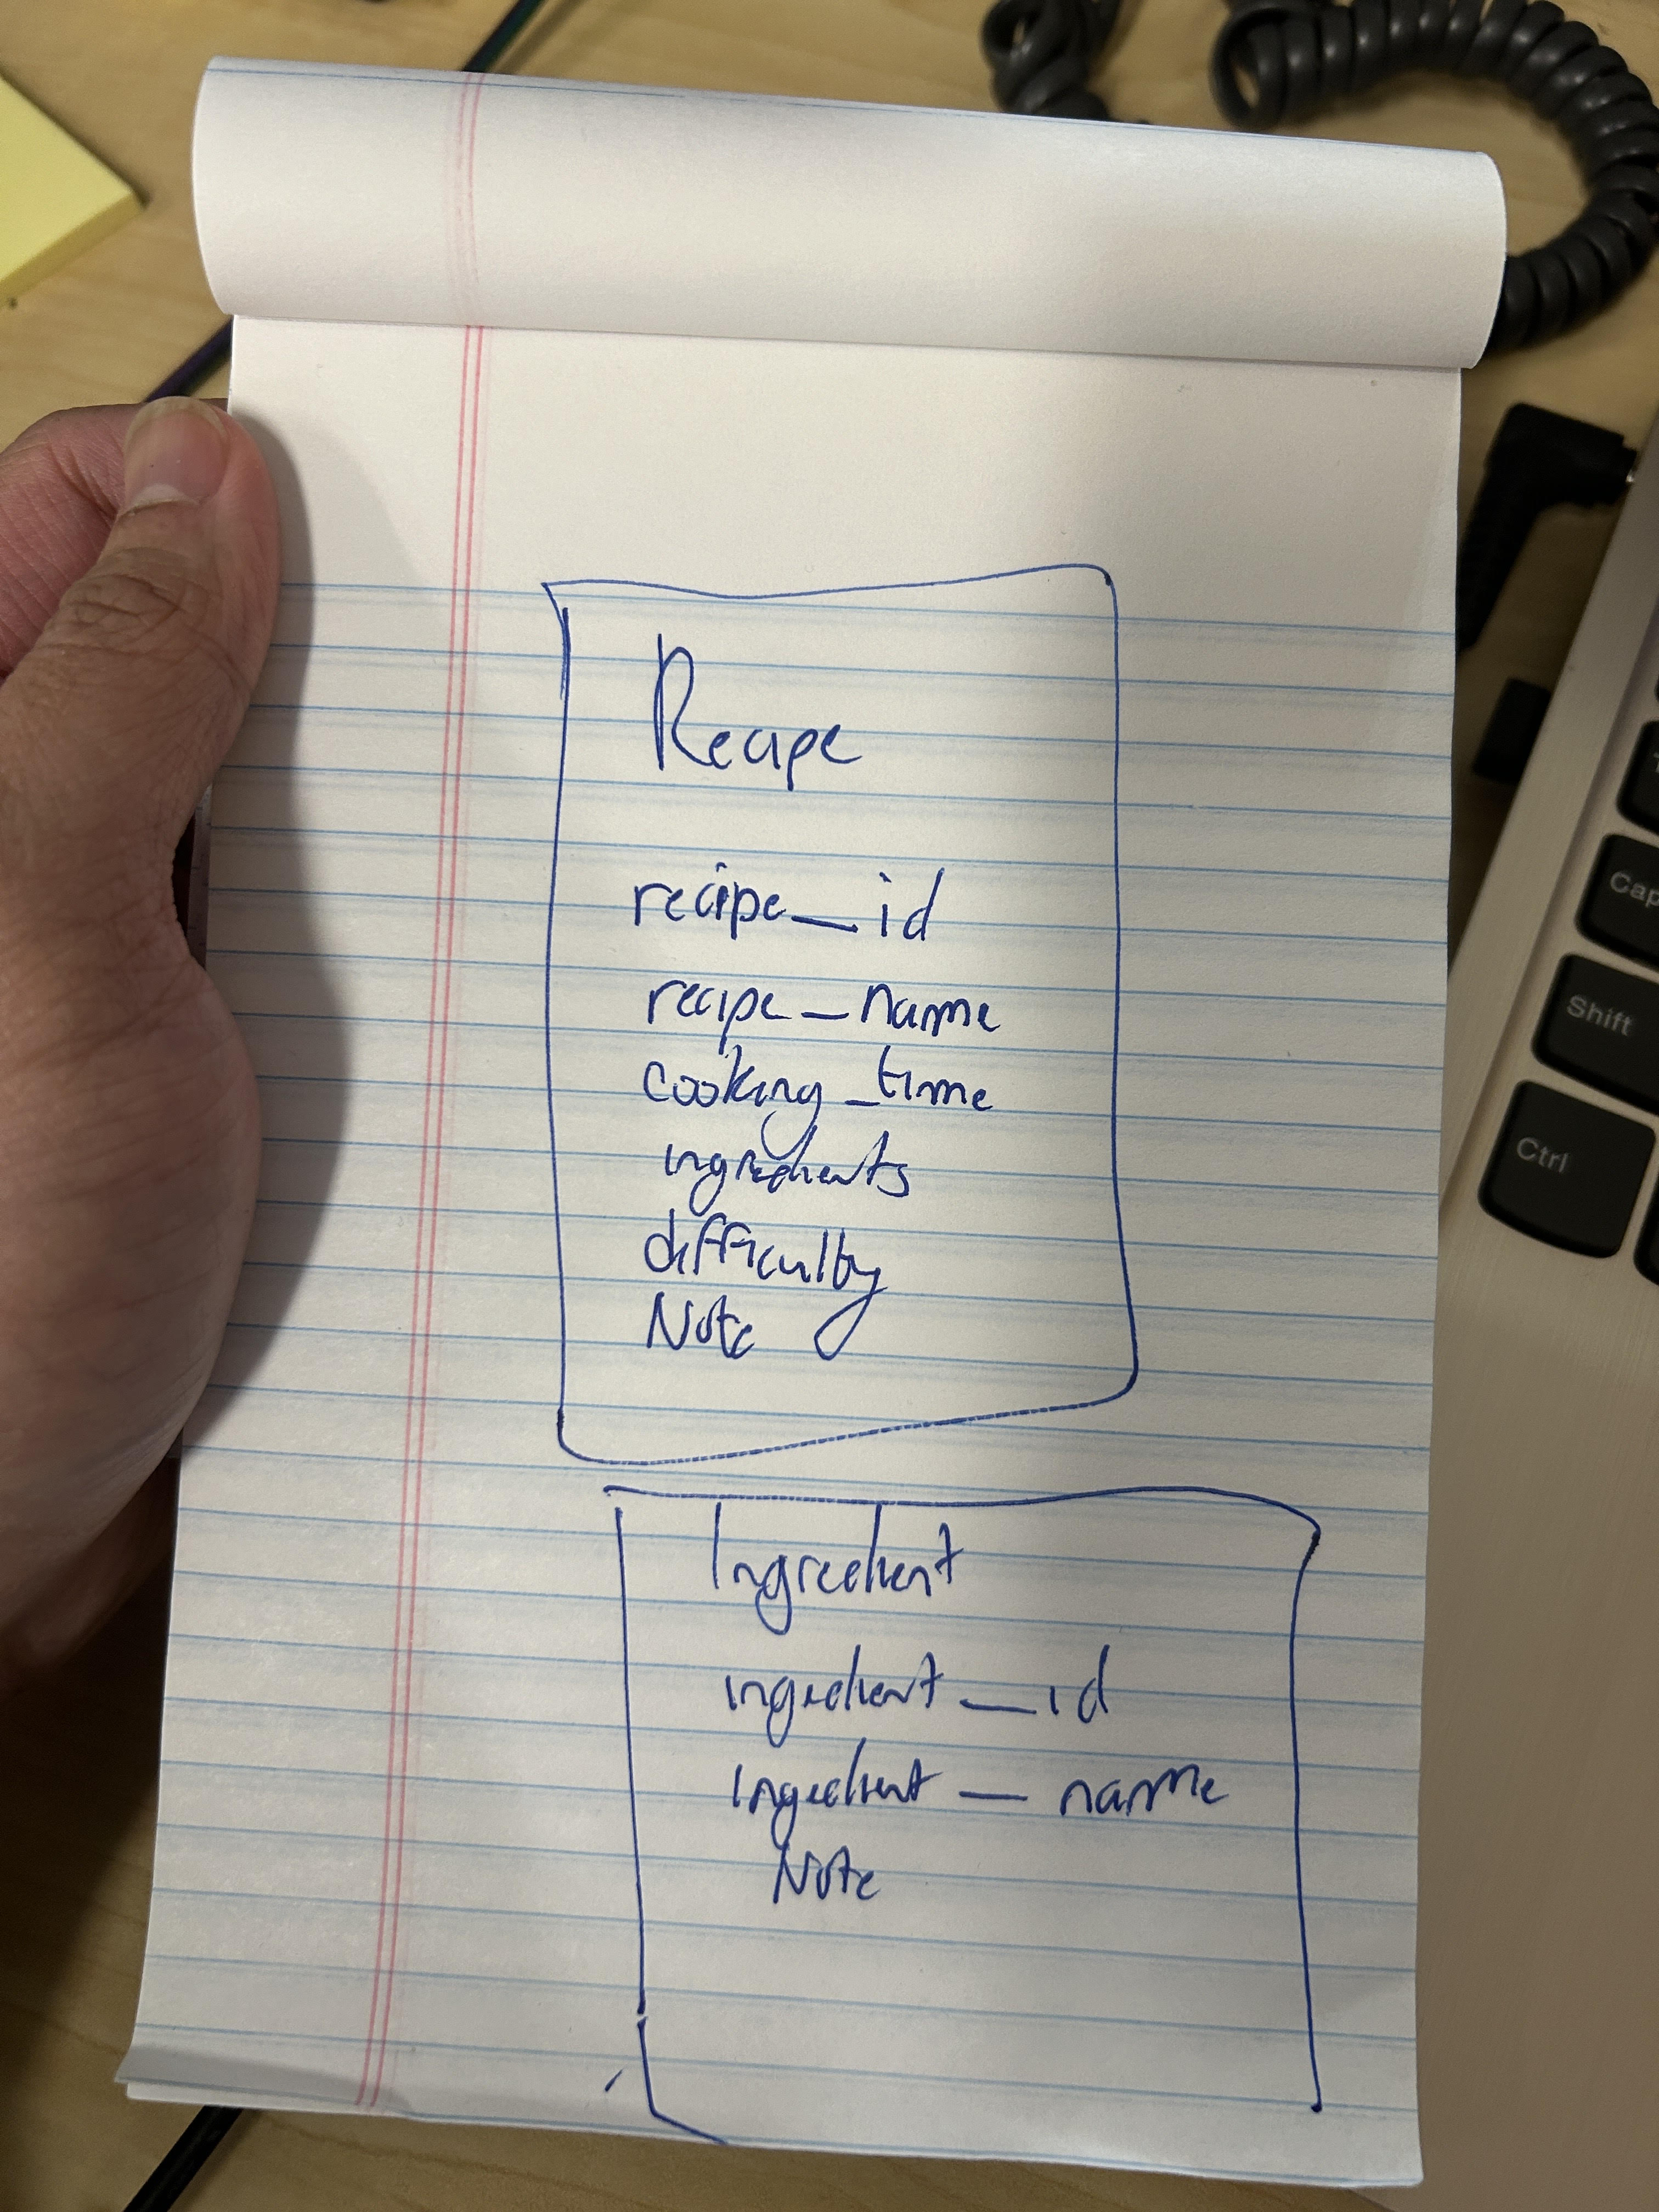 Recipe
recipe_id
recipe_name
cooking_time
ingredients
difficulty
Note
Ingredient
ingredient_id
Ingredient_name
Note
Cap
Shift
Ctrl